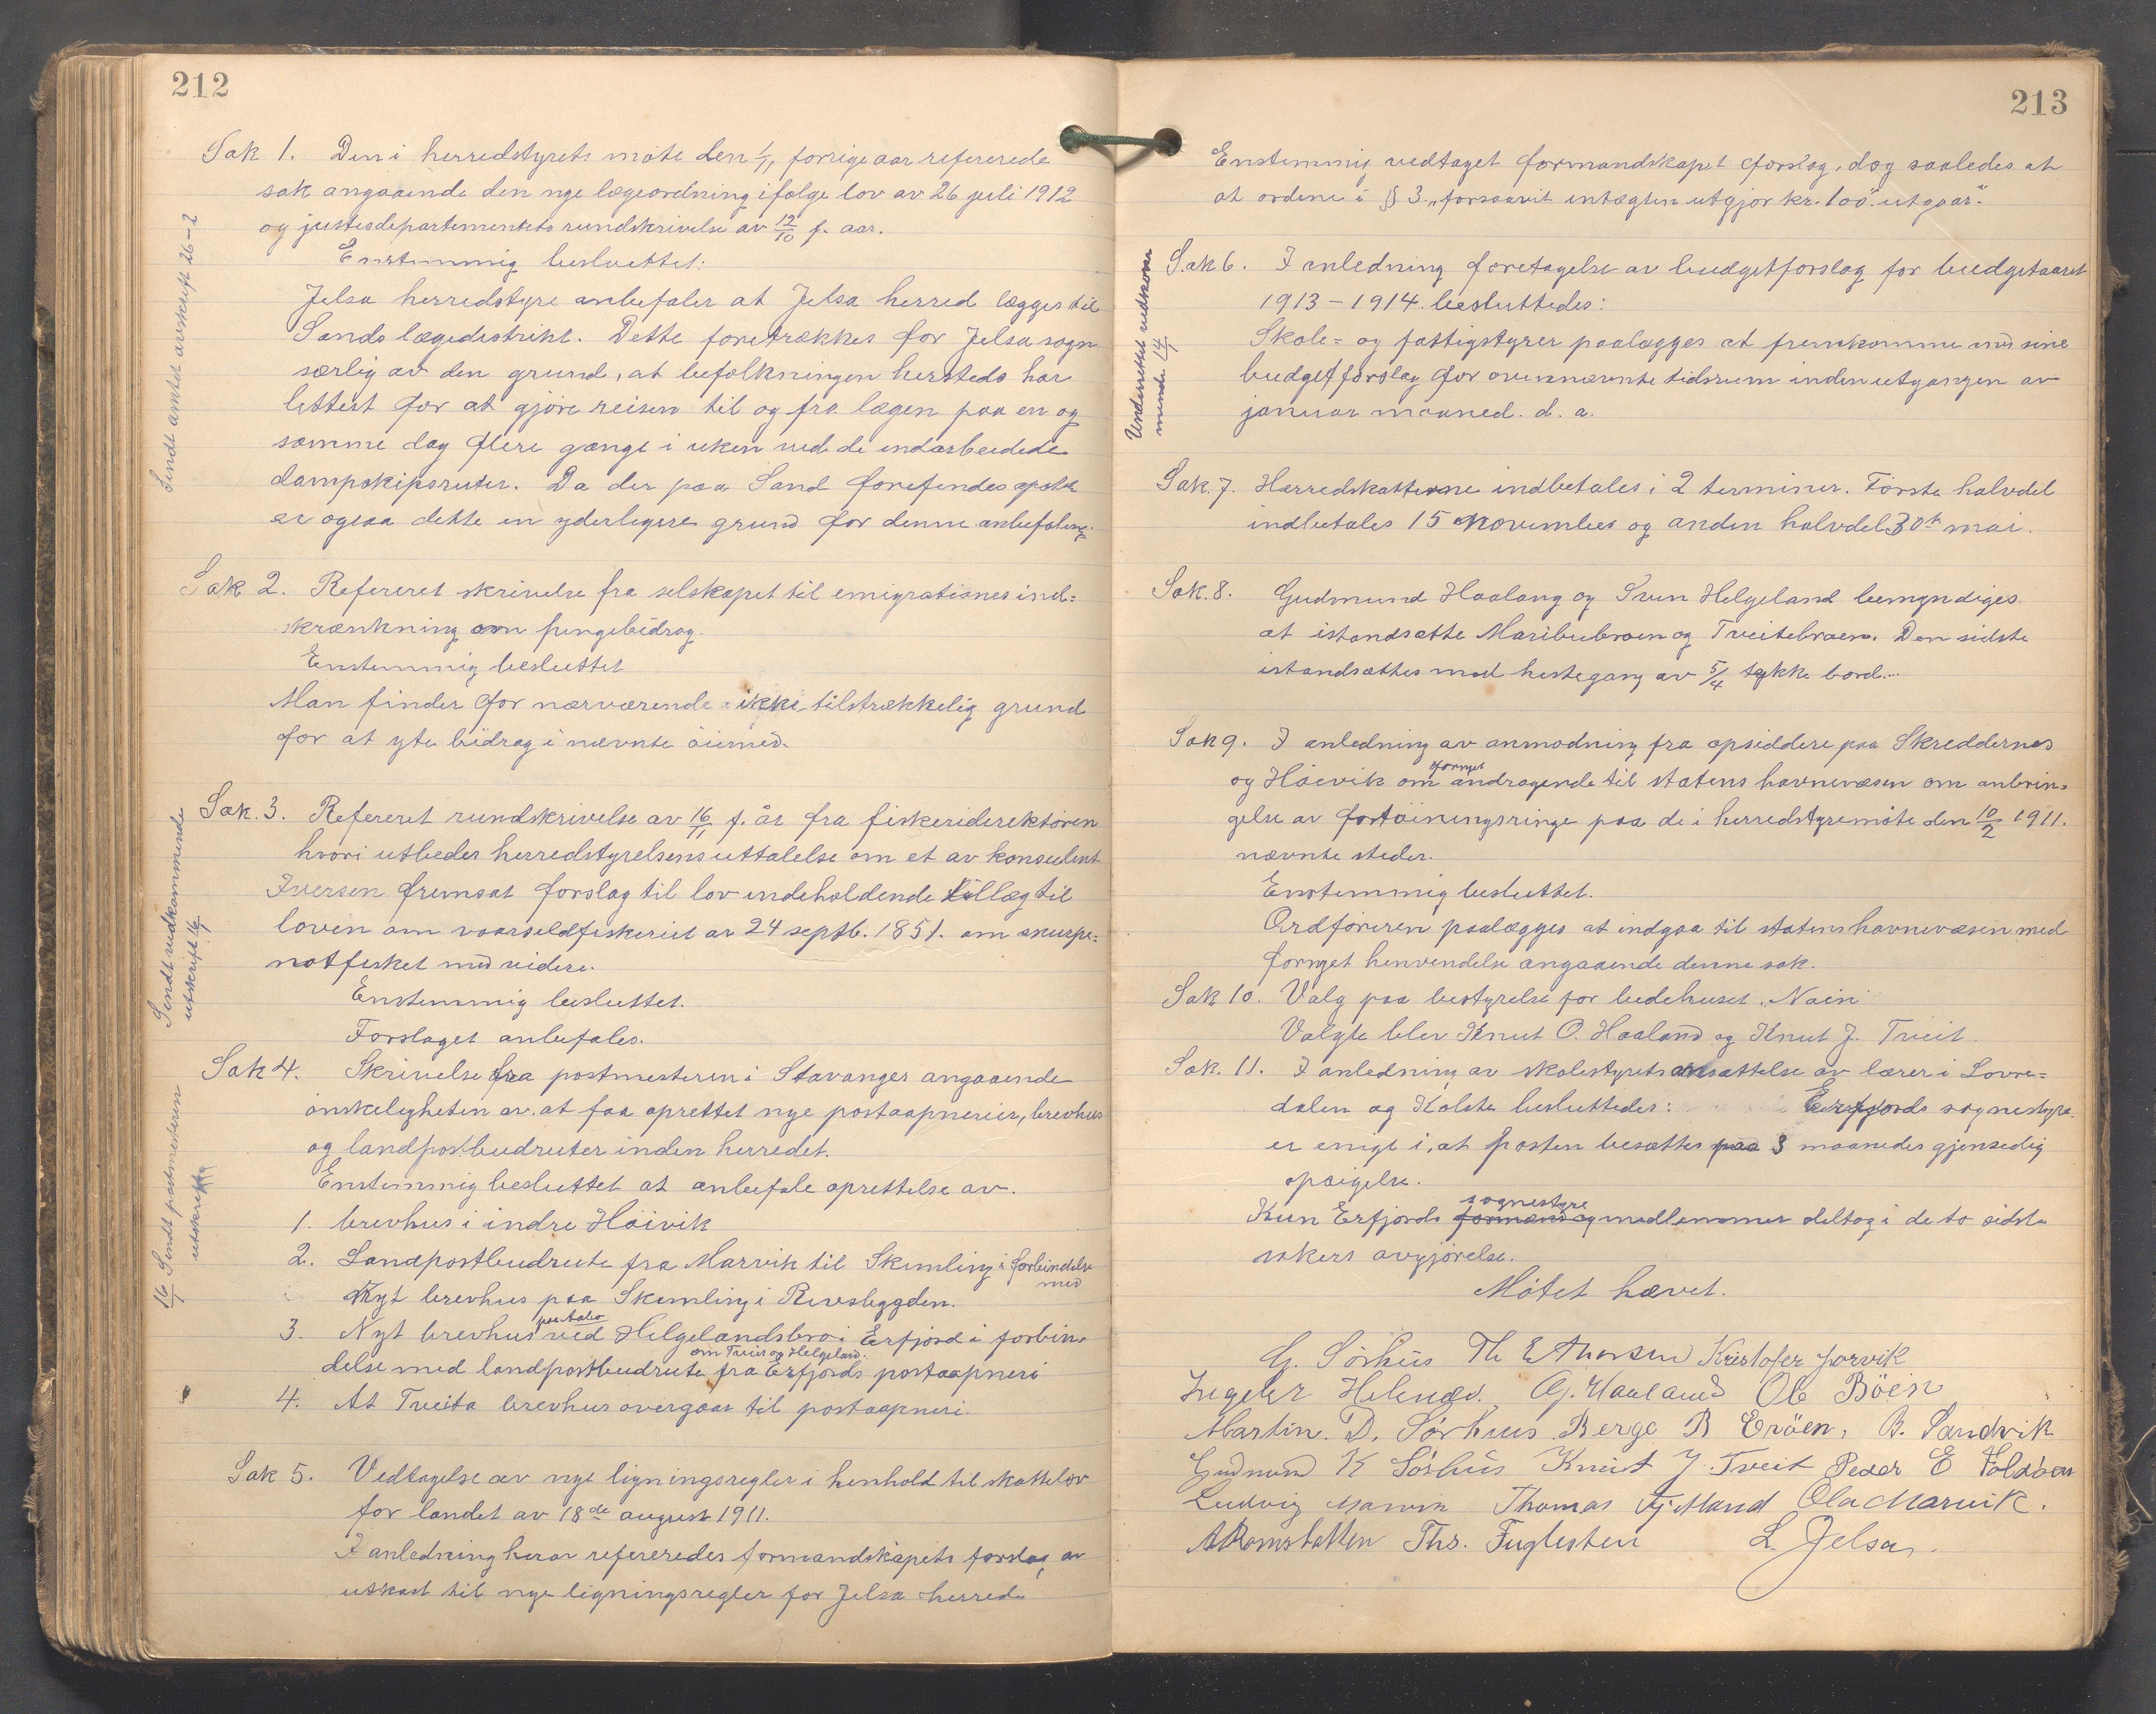 212
Sak 1. Den i herredstyrets møte den 1/11 forrige aar refererede
sak angaaende den nye lægeordning ifølge lov av 26 juli 1912
og justisdepartementets rundskrivelse av 12/10 f. aar.
Enstemmig besluttet:
Jelsa herredstyre anbefaler at Jelsa herred lægges til
Sands lægedistrikt. Dette foretrækkes for Jelsa sogn
særlig av den grund, at befolkningen hersteds har
lettest for at gjøre reisen til og fra lægen paa en og
samme dag flere gange i uken ved de indarbeidede
dampskipsruter. Da der paa Sand forefindes apotek
er ogsaa dette en yderligere grund for denne anbefaling.
Sendt amtet avskrift 26-2
Sak 2. Refereret skrivelse fra selskapet til emigrationes ind=
skrænkning om pengebidrag.
Enstemmig besluttet
Man finder for nærværende ikke tilstrækkelig grund
for at yte bidrag i nævnte øiemed.
Sak. 3. Refereret rundskrivelse av 16/11 f. år fra fiskeridirektøren
hvori utbedes herredstyrelsens uttalelse om et av konsulent
Iversen fremsat forslag til lov indeholdende tillæg til
loven om vaarsildfiskeriet av 24 septb. 1851. om snurpe=
notfisket med videre.
Enstemmig besluttet.
Forslaget anbefales.
Sendt vedkommende
utskrift 16/1
Sak 4. Skrivelse fra postmesteren i Stavanger angaaende
ønskeligheten av at faa oprettet nye postaapnerier, brevhus
og landpostbudruter inden herredet.
Enstemmig besluttet at anbefale oprettelse av.
1. brevhus i indre Høivik
2. Landpostbudrute fra Marvik til Skimling i forbindelse
med
Nyt brevhus paa Skimling i Revsbygden.
3. Nyt brevhus ved Helgelandsbro i Erfjord i forbin=
om Tveit og Helgeland.
delse med landpostbudrute fra Erfjords postaapneri
4. At Tveita brevhus overgaar til postaapneri.
16/1 Sendt postmesteren
utskrift
Sak 5. Vedtagelse av nye ligningsregler i henhold til skattelov
for landet av 18de august 1911.
I anledning herav refereredes formandskapets forslag av
utkast til nye ligningsregler for Jelsa herred
213
Enstemmig vedtaget formandskapet forslag, dog saaledes at
at ordene i § 3. „forsaavit intægten utgjør kr. 100" utgaar."
Sak 6. I anledning foretagelse av budgetforslag for budgetaaret
1913 - 1914. besluttedes:
Skole= og fattigstyrer paalægges at fremkomme med sine
budgetforslag for ovennævnte tidsrum inden utgangen av
januar maaned. d. a.
Underrettet vedkom
mende 14/1
Sak. 7. Herredskatterne indbetales i 2 terminer. Første halvdel
indbetales 15 november og anden halvdel 30te mai.
Sak. 8. Gudmund Haaland og Sven Helgeland bemyndiges
at istandsætte Maribubroen og Tveitebroen. Den sidste
istandsættes med hestegang av 5/4 tykke bord.
Sak 9. I anledning av anmodning fra opsiddere paa Skreddernes
fornyet
og Høivik om andragende til statens havnevæsen om anbrin=
gelse av fortøiningsringe paa de i herredstyremøte den 10/2 1911.
nævnte steder.
Enstemmig besluttet.
Ordføreren paalægges at indgaa til statens havnevæsen med
fornyet henvendelse angaaende denne sak.
Sak 10. Valg paa bestyrelse for bedehuset „Nain"
Valgte blev Knut O. Haaland og Knut J. Tveit.
Sak. 11. I anledning av skolestyrets ansættelse av lærer i Lovre=
dalen og Kolste besluttedes: Erfjords sognestyre
er enigt i, at posten besættes paa 3 maaneders gjensedig
opsigelse.
sognestyre
Kun Erfjords formænd og medlemmer deltog i de to sidste
sakers avgjørelse.
Møtet hævet.
G. Sørhus Th E Thorsen Kristofer Jorvik
O. Haaland Ole Bøen
Martin. D. Sørhus Berge B Erøen, B. Sandvik
Gudmund K Sørhus Knut J. Tveit Peder E Foldøen
Ludvig Marvik Thomas Ola Marvik.
Ths. Fuglesten L. Jelsa